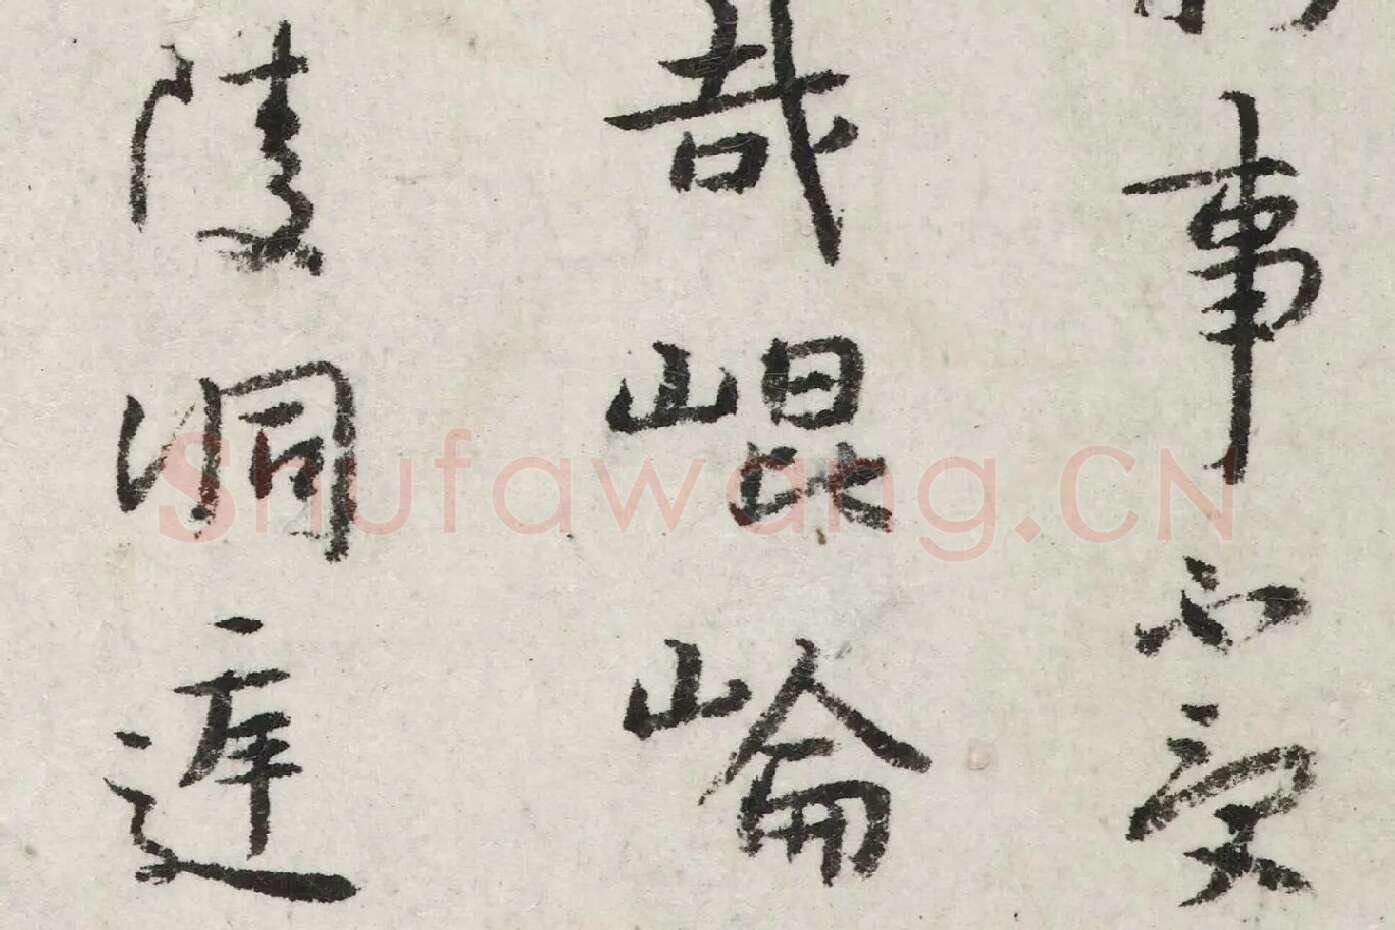 事不受
哉崐崘
陵洞遅
Shufawang.CN